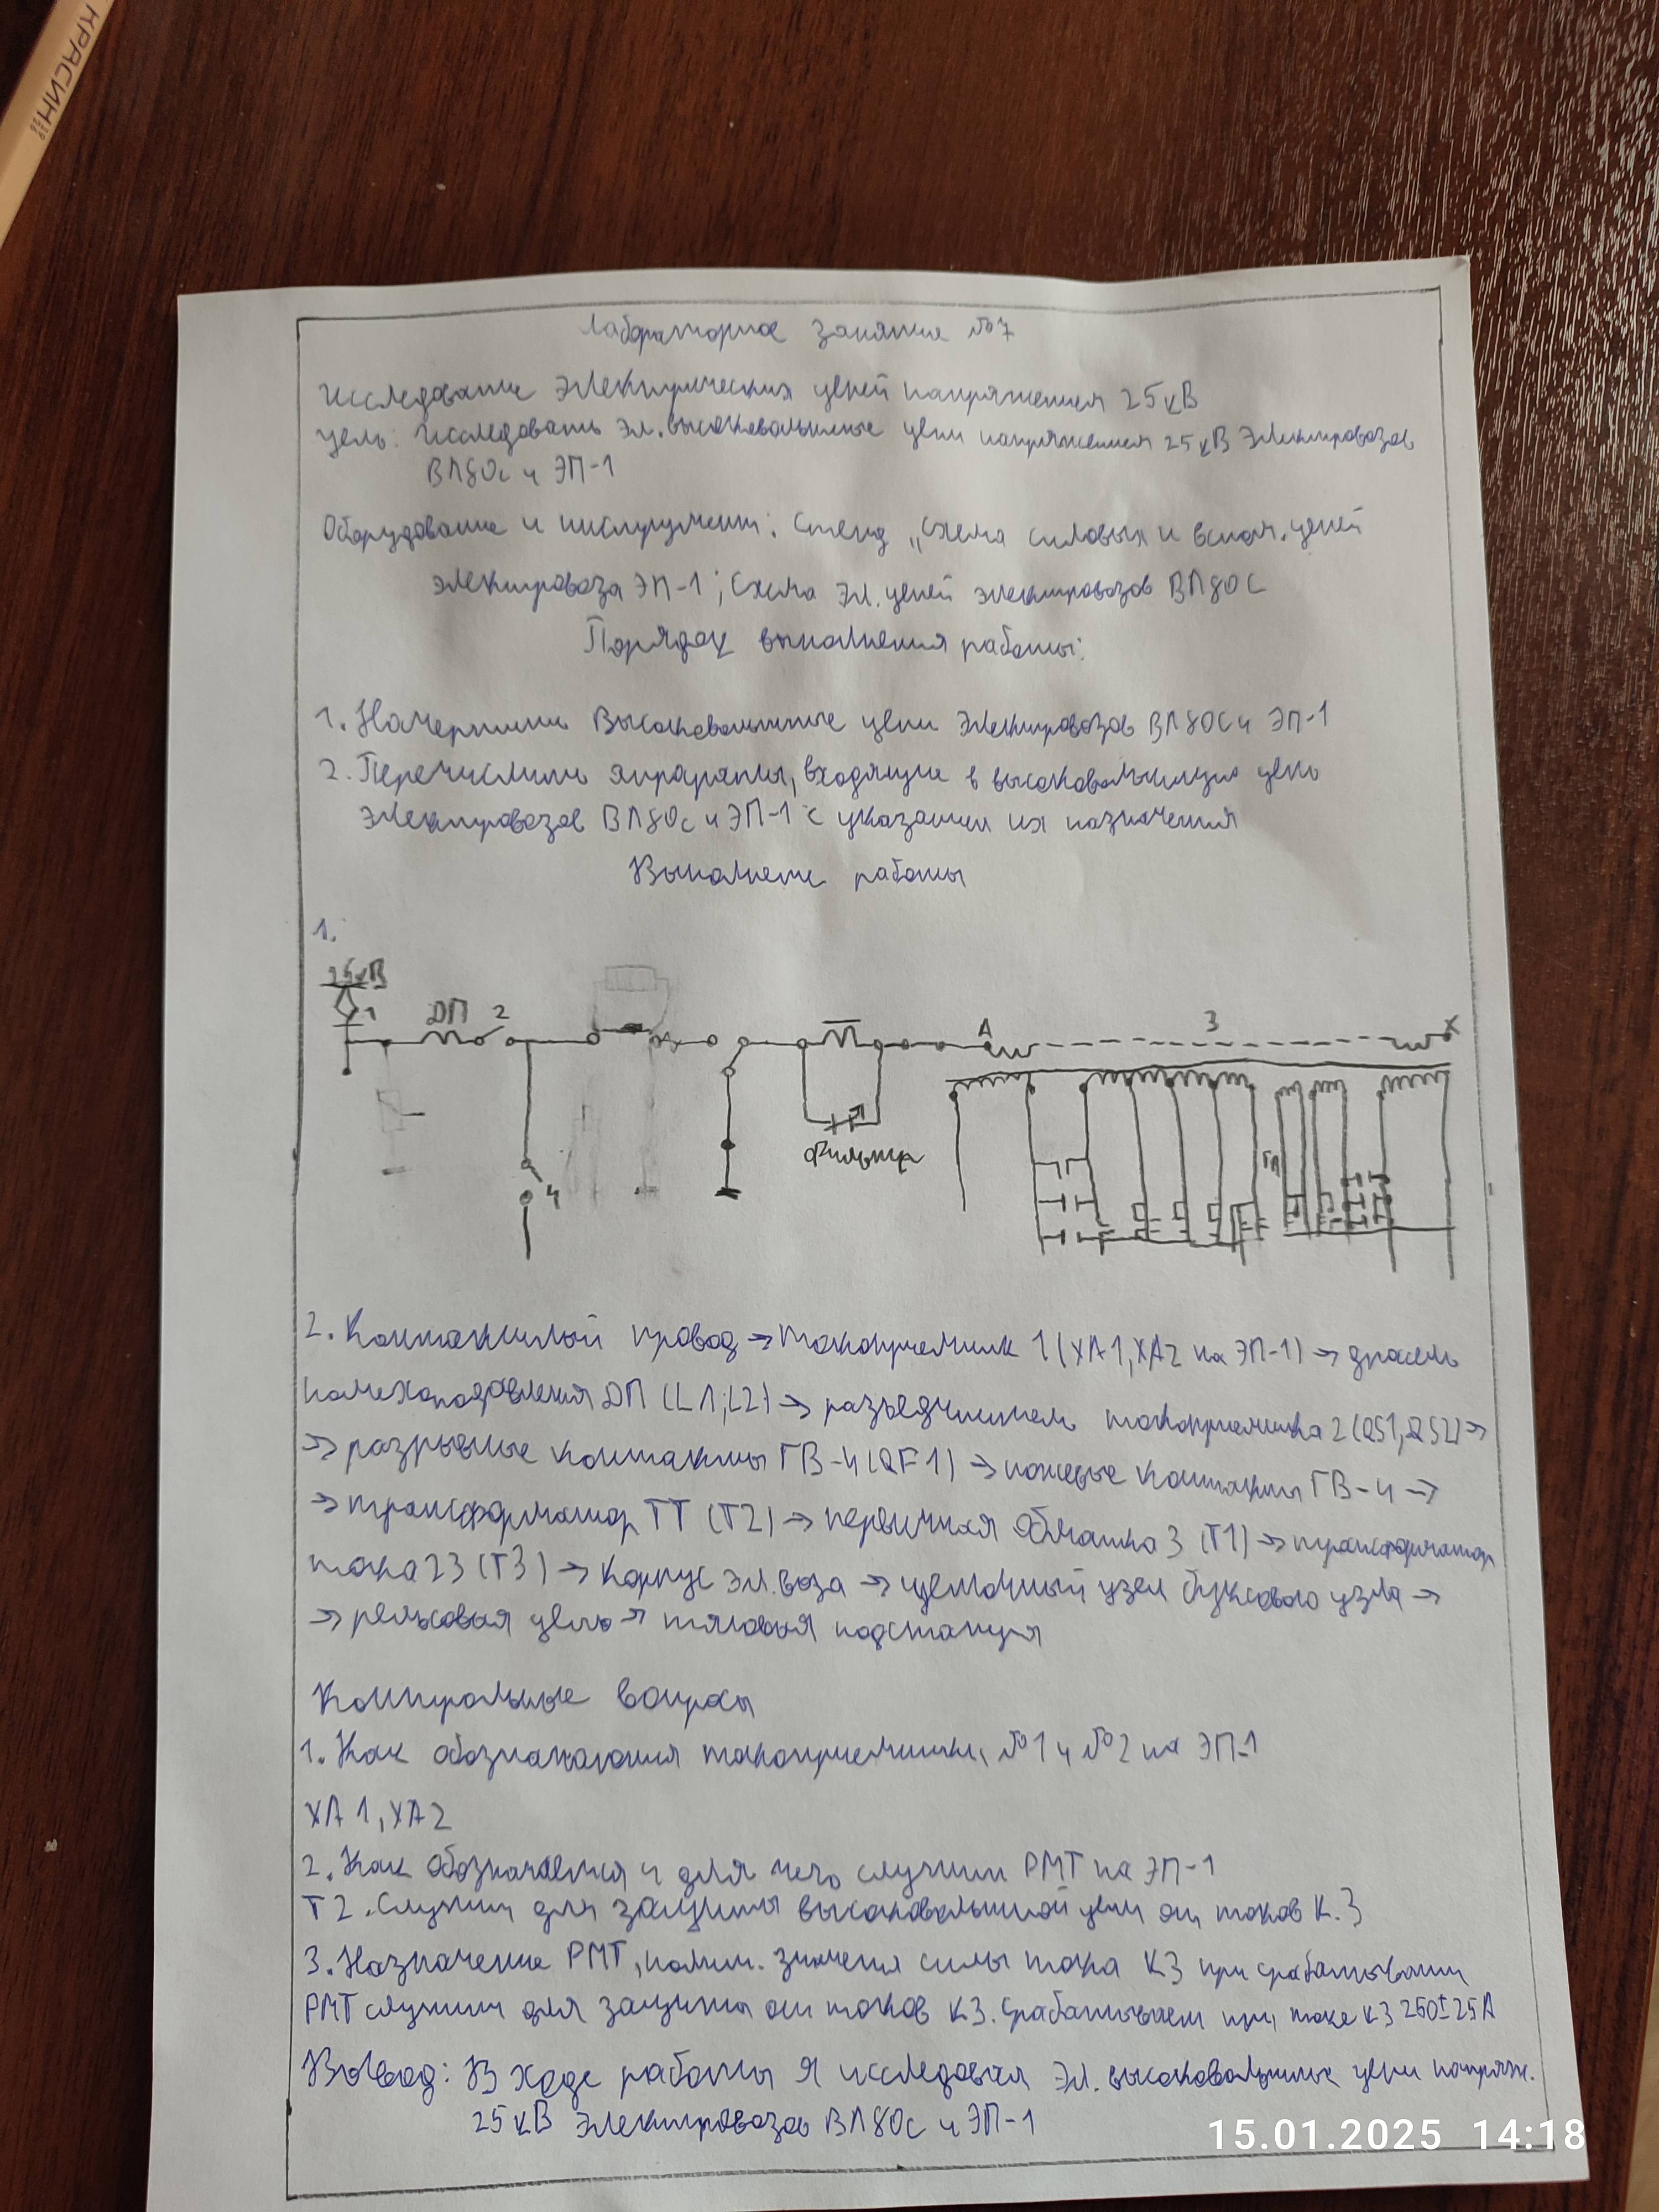 КРАСИН
Лабораторное занятие №7
Исследование электрических цепей напряжением 25кВ
Цель: Исследовать эл. высоковольтные цепи напряжением 25кВ электровозов
ВЛ80с и ЭП-1
Оборудование и инструмент: Стенд „Схема силовых и вспом. цепей
электровоза ЭП-1; Схема эл. цепей электровозов ВЛ80С
Порядок выполнения работы:
1. Начертить высоковольтные цепи электровозов ВЛ80С и ЭП-1
2. Перечислить аппараты, входящие в высоковольтную цепь
электровозов ВЛ80с и ЭП-1 с указанием их назначения
Выполнение работы
1.
25кВ
1
ДП 2
А 3 Х
4
Фильтр
2. Контактный провод → токоприемник 1 (ХА1, ХА2 на ЭП-1) → дросель
помехоподавления ДП (L1; L2) → разъединитель токоприемника 2 (QS1, QS2) →
→ разрывные контакты ГВ-4 (QF1) → ножевые контакты ГВ-4 →
→ трансформатор ТТ (Т2) → первичная обмотка 3 (Т1) → трансформатор
тока 23 (Т3) → корпус эл. воза → узел буксового узла →
→ рельсовая цепь → тяговая подстанция
Контрольные вопросы
1. Как обозначаются токоприемники №1 и №2 на ЭП-1
ХА1, ХА2
2. Как обозначается и для чего служит РМТ на ЭП-1
Т2. Служит для защиты высоковольтной цепи от токов К.З
3. Назначение РМТ, номин. значения силы тока КЗ при срабатывании
РМТ служит для защиты от токов КЗ. Срабатывает при токе КЗ 250±25А
Вывод: В ходе работы я исследовал эл. высоковольтные цепи напряж.
25кВ электровозов ВЛ80с и ЭП-1
15.01.2025 14:18